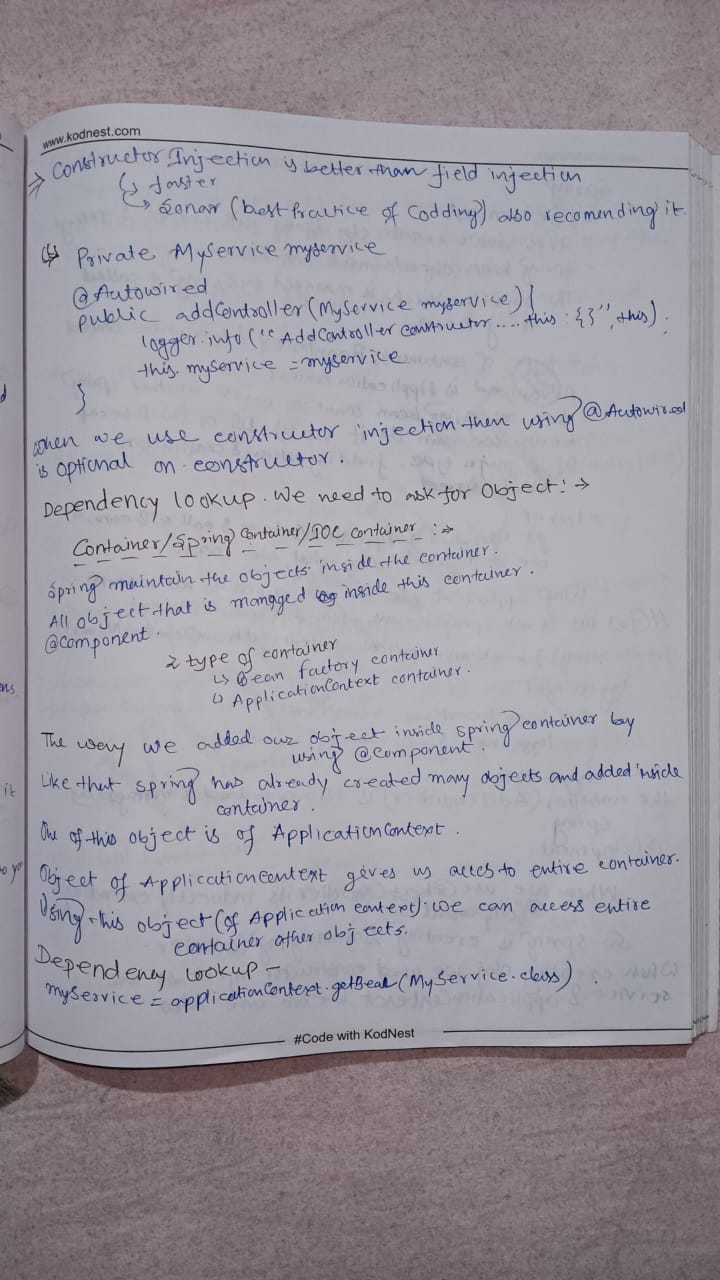 www.kodnest.com
⇒ Constructor Injection is better than field injection
↳ faster
↳ Sonar (best Practice of Codding) also recomending it.
Private MyService myservice
@Autowired
public addController(MyService myservice) {
logger.info("AddController constructor .... this : {}", this).
this. myservice = myservice
}
when we use constructor injection then using @Autowired
is optional on constructor.
Dependency lookup. We need to ask for Object: →
Container/Spring Container/IOC Container :→
Spring maintain the objects inside the container.
All object that is managed inside this container.
@Component.
2 type of container
↳ Bean factory container
↳ ApplicationContext container.
The way we added our object inside spring container by
using @Component.
Like that spring has already created many objects and added inside
container.
One of this object is of ApplicationContext.
Object of Applicationcontext gives us acces to entire container.
Using this object (of Application context) we can access entire
container other objects.
Dependency Lookup –
myService = applicationContext.getBean(MyService.class) .
#Code with KodNest
d
ens
it
to yo